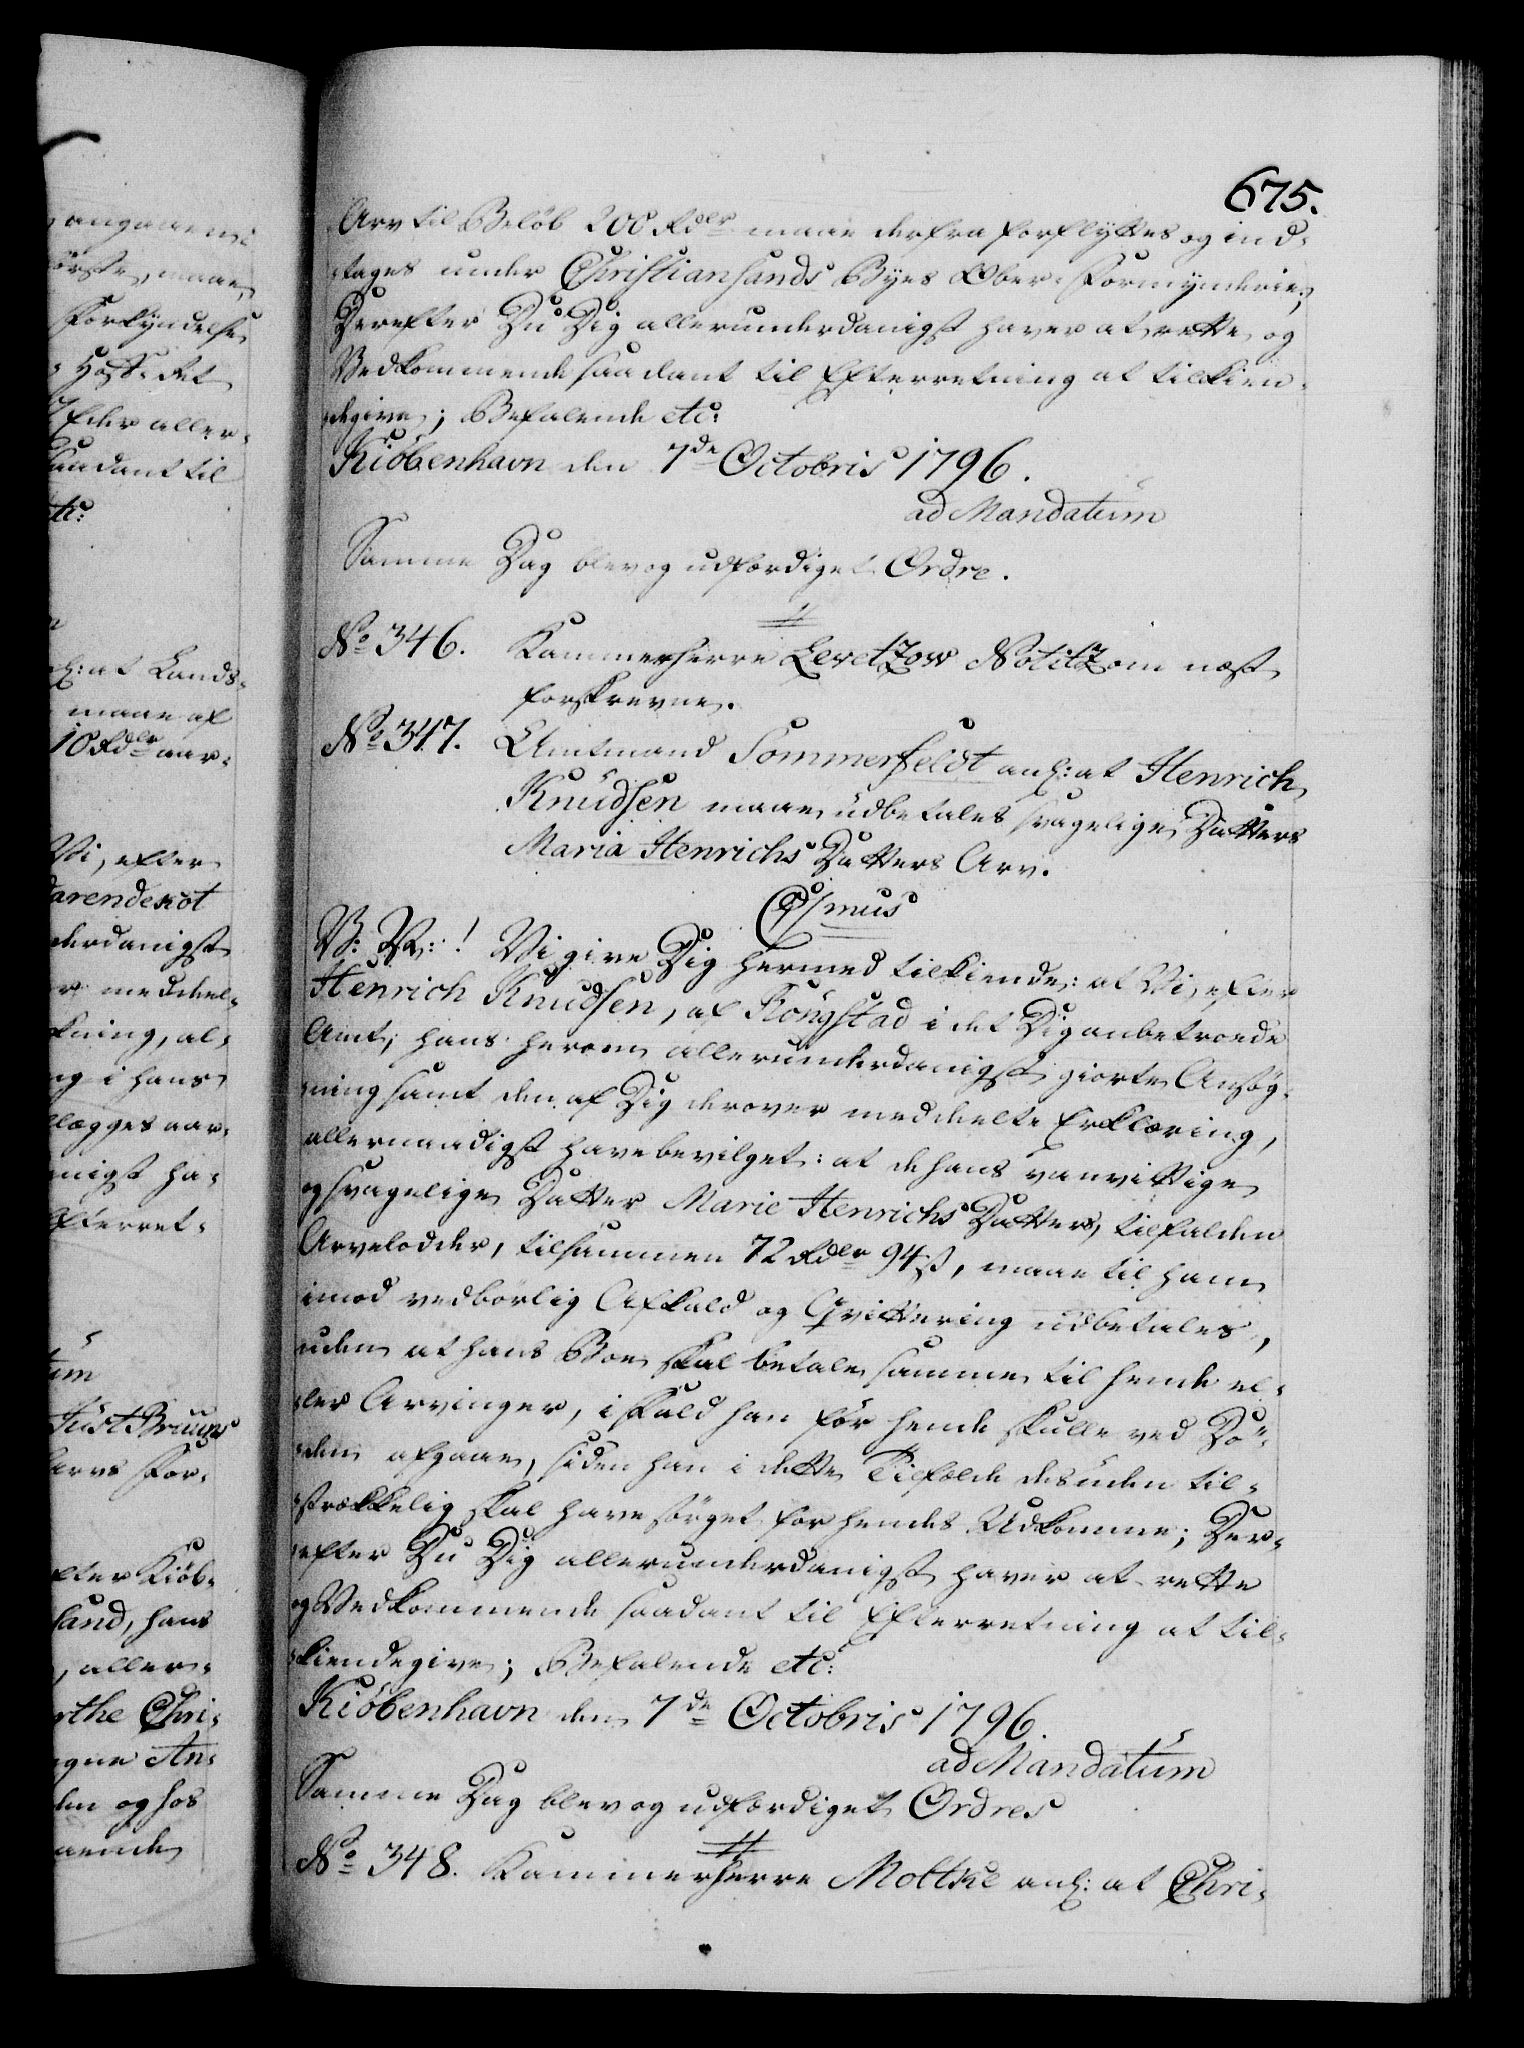 675.
Arv til Beløb 200 Rdlr maae derfra forflyttes og ind-
tages under Christiansands Byes Ober-Formynderie;
Derefter Du Dig allerunderdanigst haver at rette og
Vedkommende saadant til Efterretning at tilkien-
degive; Befalende etc:
Kiøbenhavn den 7de Octobris 1796.
ad Mandatum
Samme Dag blev og udfærdiget Ordre.
No 346. Kammerherre Levetzow Notitz om næst
forskrevne.
No 347. Amtmand Sommerfeldt anl: at Henrich
Knudsen maae udbetales svagelige Datters
Maria Henrichs Datters Arv.
C7mus
V: V:! Vi give Dig hermed tilkiende: at Vi, efter
Henrich Knudsen, af Kongstad i det Dig anbetroede
Amt, hans herom allerunderdanigst giorte Ansøg-
ning samt den af Dig derover meddeelte Erklæring,
allernaadigst have bevilget: at de hans vanvittige
og svagelige Datter Marie Henrichs Datters, tilfalden
Arvelodder, tilsammen 72 Rdlr 94 s, maae til ham
imod vedbørlig Afkald og Qvittering udbetales,
uden at hans Boe skal betale samme til hende el-
ler Arvinger, ifald han før hende skulle ved Dö-
den afgaae, siden han i dette Tilfælde desuden til-
strækkelig skal have sørget for hendes Udkomme; Der-
efter Du Dig allerunderdanigst haver at rette
og Vedkommende saadant til Efterretning at til-
kiendegive; Befalende etc:
Kiøbenhavn den 7de Octobris 1796.
ad Mandatum
Samme Dag blev og udfærdiget Ordres
No 348. Kammerherre Moltke anl: at Chri-